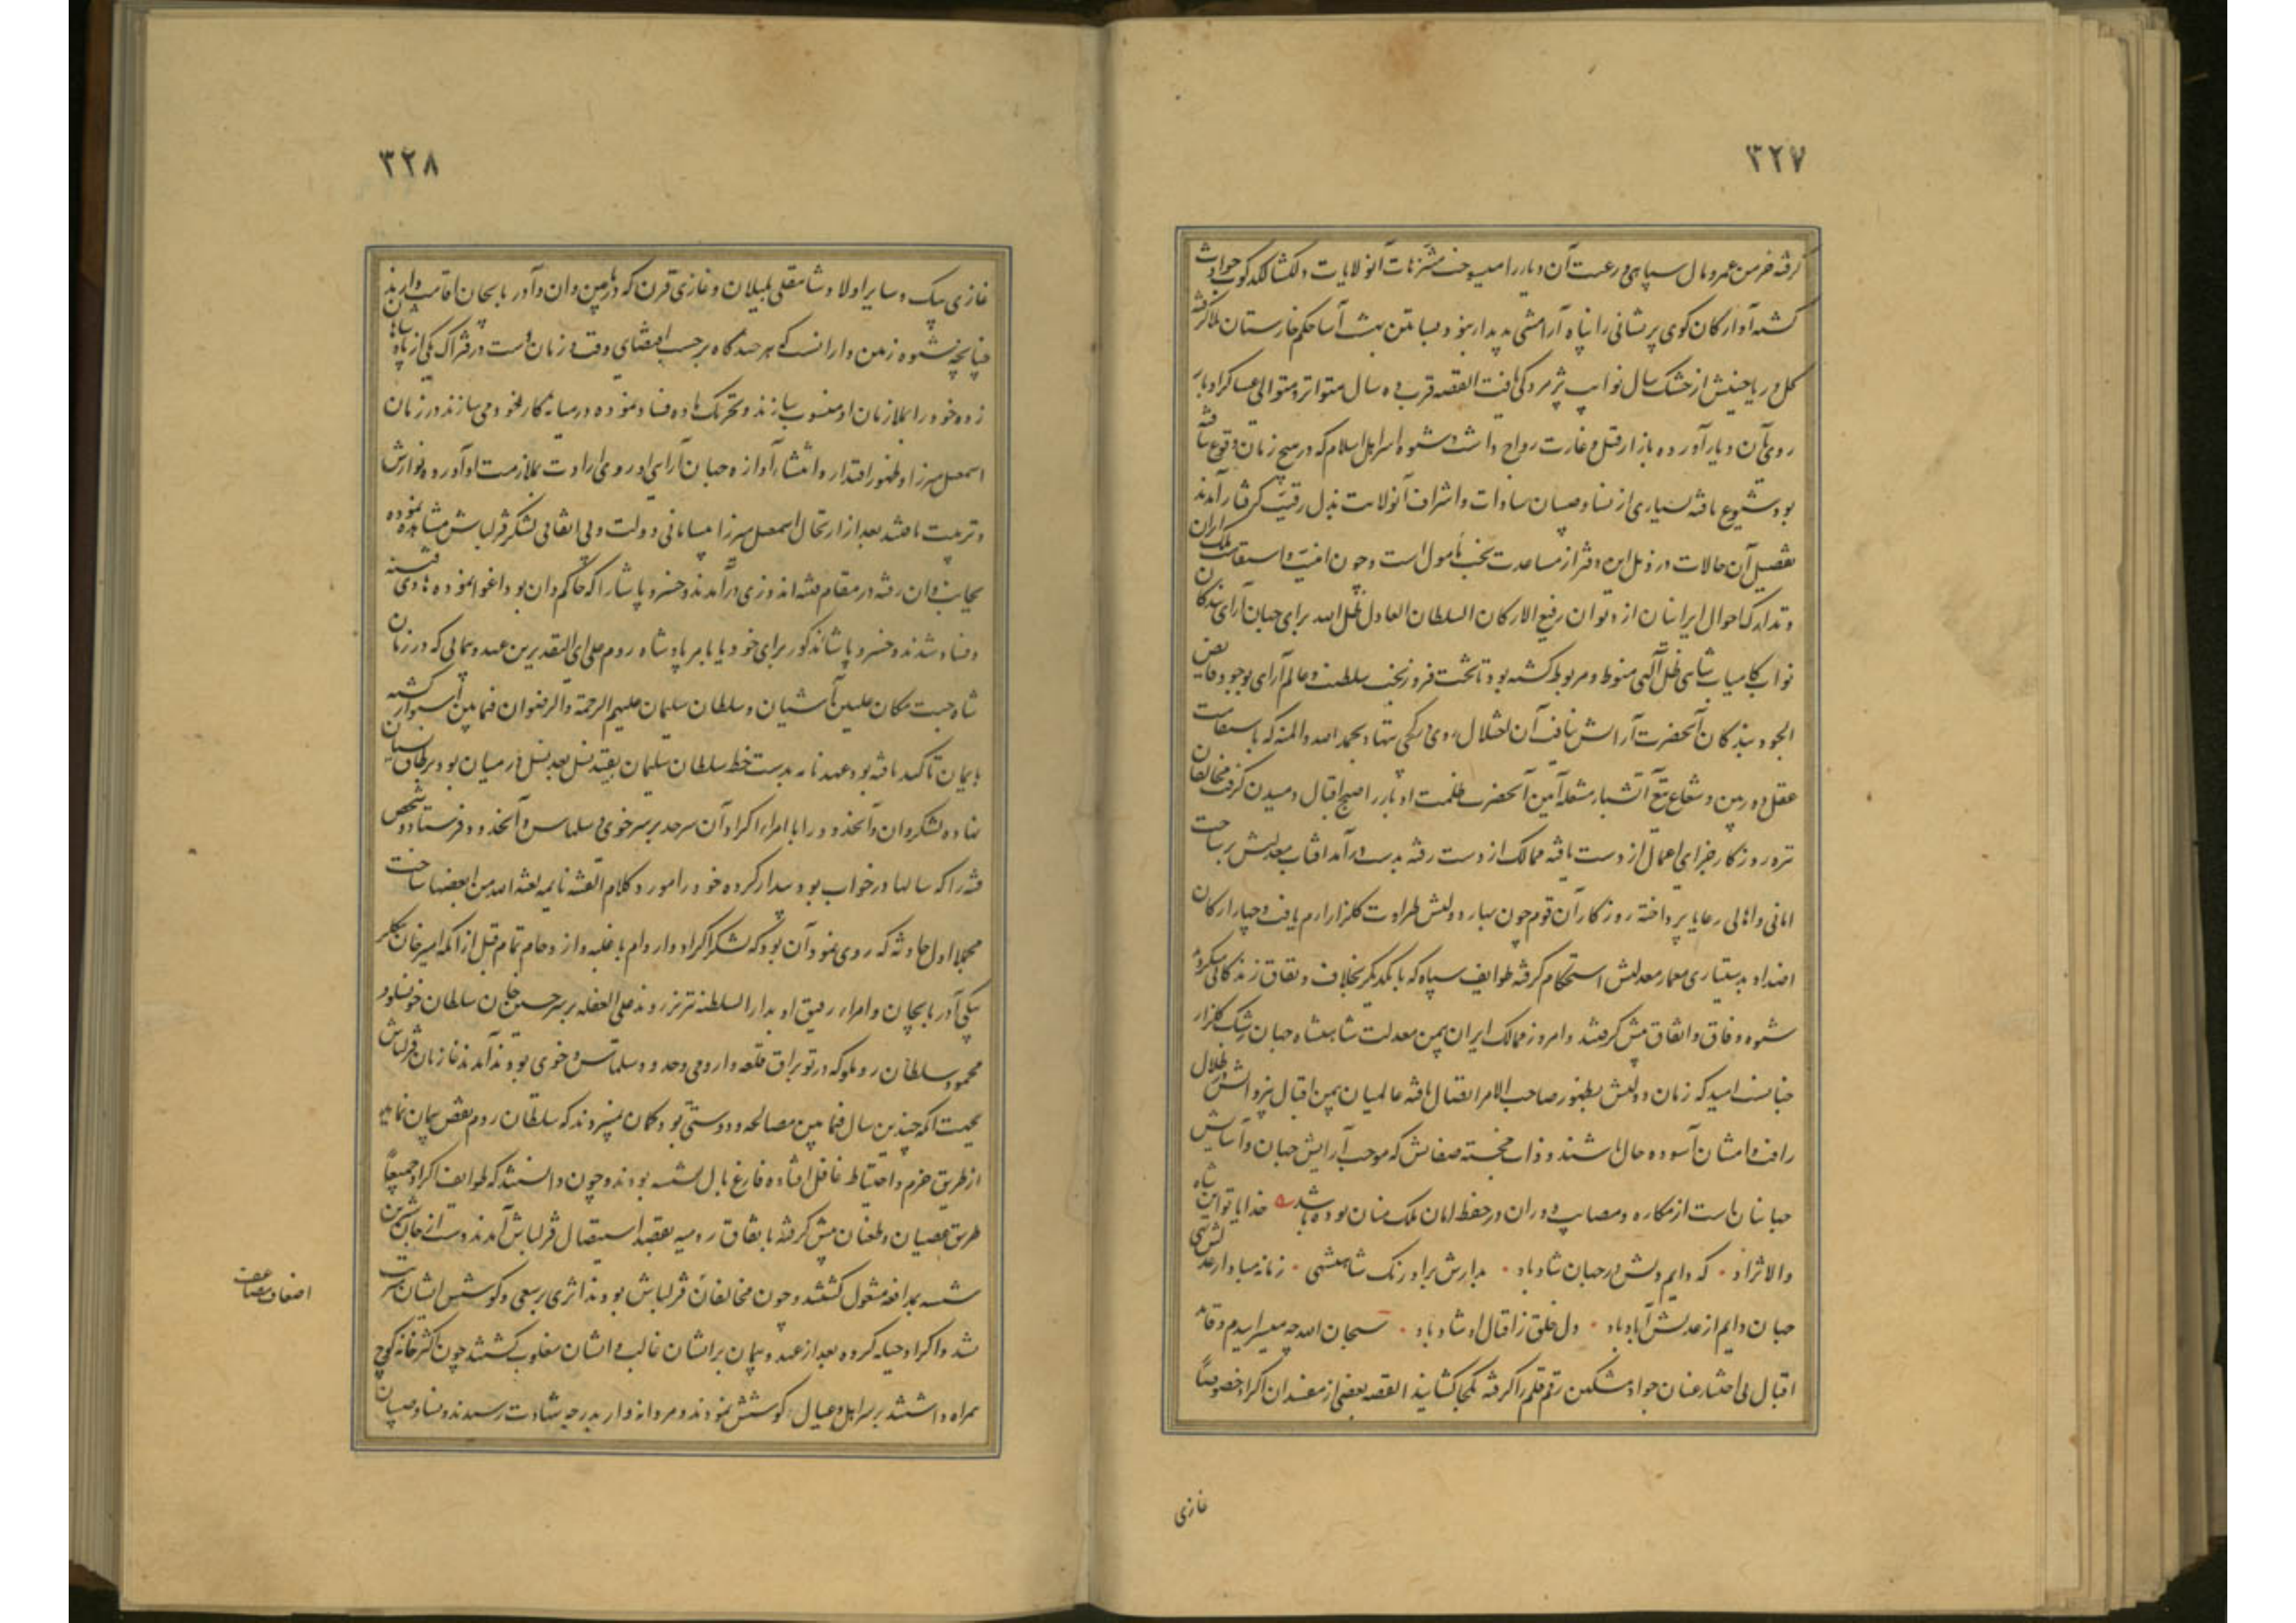 ٣٢٧
گرفته خرمن عمر و مال سپاهی و رعیت آن دیار را میسوخت متنزهات آنولایات دلگشا لگدکوب حوادث
گشته آوارگان کوی پریشانی را پناه آرامشی پدیدار نبود بساتین بهشت آسا حکم خارستان ملا گرفته
گل و ریاحینش از خشک سال نوایب پژمردگی یافت القصه قرب ده سال متواتر و متوالی عساکر ادبار
روی بآن دیار آورده بازار قتل و غارت رواج داشت و شیوه اسر اهل اسلام که در هیچ زمان وقوع نیافته
بود شیوع یافته بسیاری از نسا و صبیان سادات و اشراف آنولایت بذل رقیت گرفتار آمدند
تفصیل آن حالات در ذیل این دفتر از مساعدت بخت مأمول است و چون امنیت و استقامت ملک ایران
و تدارک احوال ایرانیان از دیوان رفیع الارکان السلطان العادل ظل الله برای جهان آرای بندگان
نواب کامیاب شاهی ظل آلهی منوط و مربوط گشته بود تا تخت فروزبخت سلطنت و عالم آرای بوجود فایض
الجود بندگان آنحضرت آرایش نیافت آن اختلال روی بکمی ننهاد بحمد الله والمنه که باستقامت
عقل دوربین و شعاع تیغ آتشبار شعله آیین آنحضرت ظلمت ادبار را صبح اقبال دمیدن گرفت مخالفان
تیره روزگار جزای اعمال از دست یافته ممالک از دست رفته بدست درآمد آفتاب معدلتش بر ساحت
امانی و اهالی رعایا پرداخته روزگار آن قوم چون بهار دولتش طراوت گلزار ارم یافت و چهار ارکان
اضداد بدستیاری معمار معدلتش استحکام گرفته طوایف سپاه که با یکدیگر بخلاف و نفاق زندگانی میکردند
شیوه وفاق و اتفاق پیش گرفتند و امروز ممالک ایران بیمن معدلت شاهنشاه جهان رشک گلزار
جنانست امید که زمان دولتش بظهور صاحب الامر اتصال یافته عالمیان بیمن اقبال در ظلال
رافت ایشان آسوده حال باشند و ذات خجسته صفاتش که موجب آرایش جهان و آسایش
جهانیان است از مکاره و مصایب دوران در حفظ امان ملک منان بوده باشد خدایا تو این شاه
والا نژاد که دایم دلش در جهان شاد باد بدارش بر اورنک شاهنشهی زمانه مبادا ز عدلش تهی
جهان دایم از عدلش آباد باد دل خلق ز اقبال او شاد باد سبحان الله چه میسرایدم وقائع
اقبال بی اختیار عنان جواد مشکین رقم قلم را گرفته بکجا کشانید القصه بعضی از مفسدان اکراد خصوصاً
غازی
٣٢٨
غازی بیک و سایر اولاد شاهقلی بلیلان و غازی قرن که در مابین وان و آذربایجان اقامت دارند
چنانچه شیوه زمین دارانست که هر چندگاه برحسب اقتضای وقت و زمان دست در فتراک یکی از پادشاهان
زده خود را بملازمان او منسوب سازند و تحریک ماده فساد نموده در میانه کار خود می سازند در زمان
اسمعیل میرزا و ظهور اقتدار و انتشار آوازه جهان آرای او روی ارادت بملازمت او آورده نوازش
و تربیت یافتند بعد از ارتحال اسمعیل میرزا بیسامانی دولت و بی اتفاقی لشکر قزلباش مشاهده نموده
بجانب وان رفته در مقام فتنه اندوزی درآمدند و خسرو پاشا را که حاکم وان بود اغوا نموده هادی فتنه
و فساد شدند و خسرو پاشا مذکور برای خود یا بامر پادشاه روم علی ای التقدیرین عهد و پیمانی که در زمان
شاه جنت مکان علیین آشیان و سلطان سلیمان علیهم الرحمة و الرضوان فیمابین استوار گشته
بایمان تاکید یافته بود و عهدنامه بدست خط سلطان سلیمان بقید نسل بعد نسل در میان بود بر طاق نسیان
نهاده لشکر وان و آنحدود را با امراء اکراد آن سرحد بر سر خوی و سلماس و آنحدود فرستاد و شخص
فتنه را که سالها در خواب بود بیدار کرده خود را مورد کلام الفتنة نایمة لعنة الله من ایقظها ساخت
مجملا اول حادثه که روی نمود آن بود که لشکر اکراد وارد ام با غلبه و ازدحام تمام قبل از آنکه امیر خان بیگلر
بیگی آذربایجان و امراء رفیق او بدار السلطنه تبریز روند علی الغفله بر سر حسین خان سلطان خنوسلو و
محمود سلطان روملو که در توبراق قلعه و ارومی و حدود سلماس و خوی بودند آمدند غازیان قزلباش
بجهت آنکه چندین سال فیمابین مصالحه و دوستی بود و گمان نمیبردند که سلطان روم نقض پیمان نماید
از طریق حزم و احتیاط غافل افتاده فارغ بال نشسته بودند و چون دانستند که طوایف اکراد جمیعاً
طریق عصیان و طغیان پیش گرفته باتفاق رومیه بقصد استیصال قزلباش آمدند دست از جان شیرین
شسته بمدافعه مشغول گشتند و چون مخالفان قزلباش بودند اثری بر سعی و کوشش ایشان مترتب
شد و اکراد حیله کرده بعد از عهد و پیمان بر ایشان غالب و ایشان مغلوب گشتند چون اکثر خانه کوچ
همراه داشتند بر سر اهل و عیال کوشش نمودند و مردانه وار بدرجه شهادت رسیدند و نسا و صبیان
اضعاف مضاعف